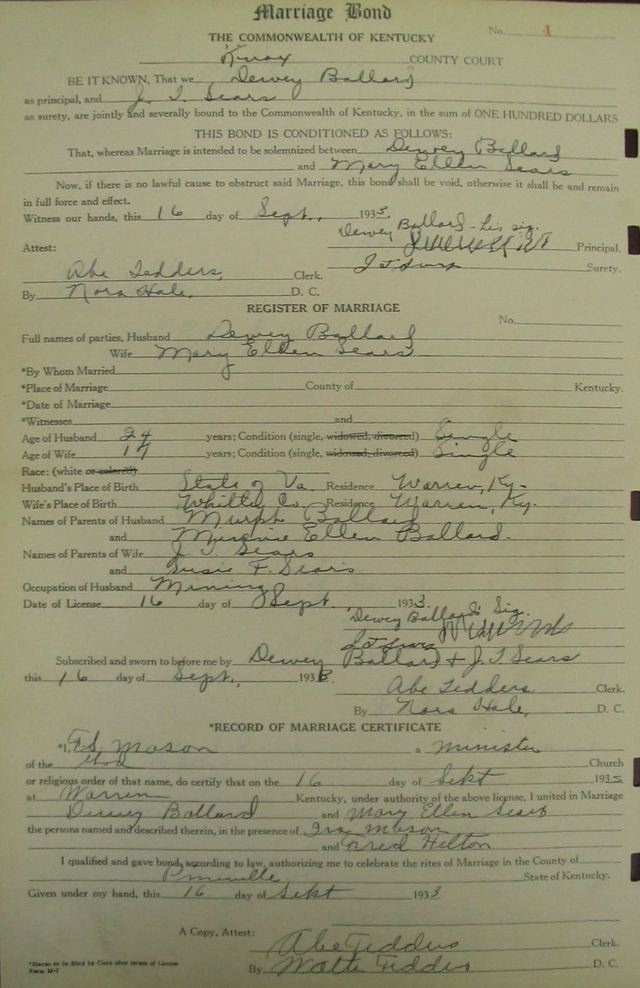 Marriage Bond
No. 1
THE COMMONWEALTH OF KENTUCKY
Knox COUNTY COURT
BE IT KNOWN, That we Dewey Ballard
as principal, and J. T. Sears
as surety, are jointly and severally bound to the Commonwealth of Kentucky, in the sum of ONE HUNDRED DOLLARS
THIS BOND IS CONDITIONED AS FOLLOWS:
That, whereas Marriage is intended to be solemnized between Dewey Ballard
and Mary Ellen Sears
Now, if there is no lawful cause to obstruct said Marriage, this bond shall be void, otherwise it shall be and remain
in full force and effect.
Witness our hands, this 16 day of Sept., 1933.
Dewey Ballard - his sig.
Attest: Principal.
Abe Tedders, Clerk. J T Sears Surety.
By Nora Hale, D. C.
REGISTER OF MARRIAGE
No.
Full names of parties, Husband Dewey Ballard
Wife Mary Ellen Sears
*By Whom Married
*Place of Marriage County of Kentucky.
*Date of Marriage
*Witnesses and
Age of Husband 24 years; Condition (single, widowed, divorced) Single
Age of Wife 17 years; Condition (single, widowed, divorced) Single
Race: (white or colored)
Husband's Place of Birth State of Va. Residence Warren, Ky.
Wife's Place of Birth Whitley Co. Residence Warren, Ky.
Names of Parents of Husband Murph Ballard
and Ellen Ballard.
Names of Parents of Wife J. T. Sears
and Susie F. Sears
Occupation of Husband Mining
Date of License 16 day of Sept., 1933.
Dewey Ballard's Sig.
J T Sears
Subscribed and sworn to before me by Dewey Ballard & J. T Sears
this 16 day of Sept., 1933
Abe Tedders Clerk.
By Nora Hale, D. C.
*RECORD OF MARRIAGE CERTIFICATE
*I, Mason a minister
of the God Church
or religious order of that name, do certify that on the 16 day of Sept 1933
at Warren Kentucky, under authority of the above license, I united in Marriage
Dewey Ballard and Mary Ellen Sears
the persons named and described therein, in the presence of Ira Mason
and Fred Helton
I qualified and gave bond, according to law, authorizing me to celebrate the rites of Marriage in the County of
Pineville State of Kentucky.
Given under my hand, this 16 day of Sept 1933
A Copy, Attest: Abe Tedders Clerk.
By Tedders D. C.
*Blanks to be filled by Clerk after return of License
Form M-1